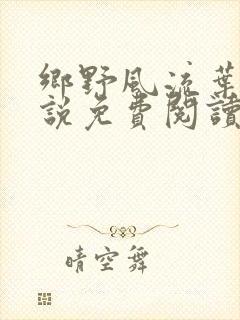 鄉野風流葉
說免費閱讀
晴空舞